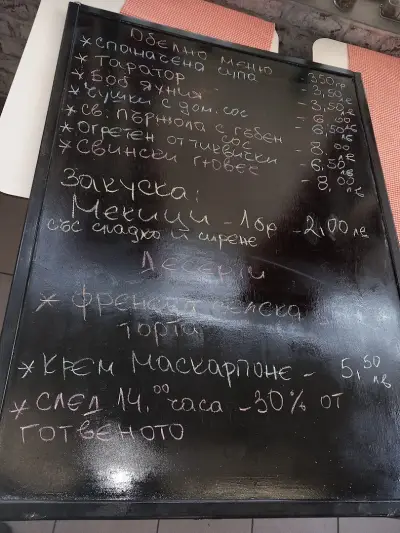 Обедно меню
* спаначена супа - 3,50 лв
* Таратор - 3,50 лв
* Боб яхния - 6,00 лв
* чушки с дом. сос - 6,50 лв
* св. пържола с гъбен сос - 8,00 лв
* огретен от тиквички - 6,50 лв
* Свински гювеч - 8,00 лв
Закуска:
Мекици - 1 бр - 2,00 лв
със сладко и сирене
Десерти
* френска селска
торта
* Крем Маскарпоне - 5,50 лв
* След 14,00 часа - 30% от
готвеното